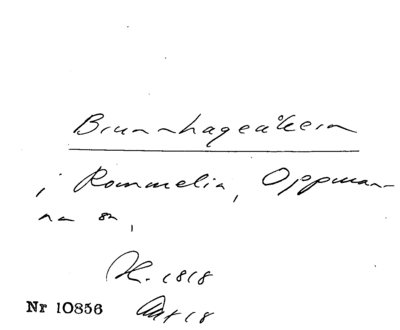 Brunnhagaåkern
i Rommelia, Oppman-
na sn,
H. 1818
Nr 10856 Akt 18